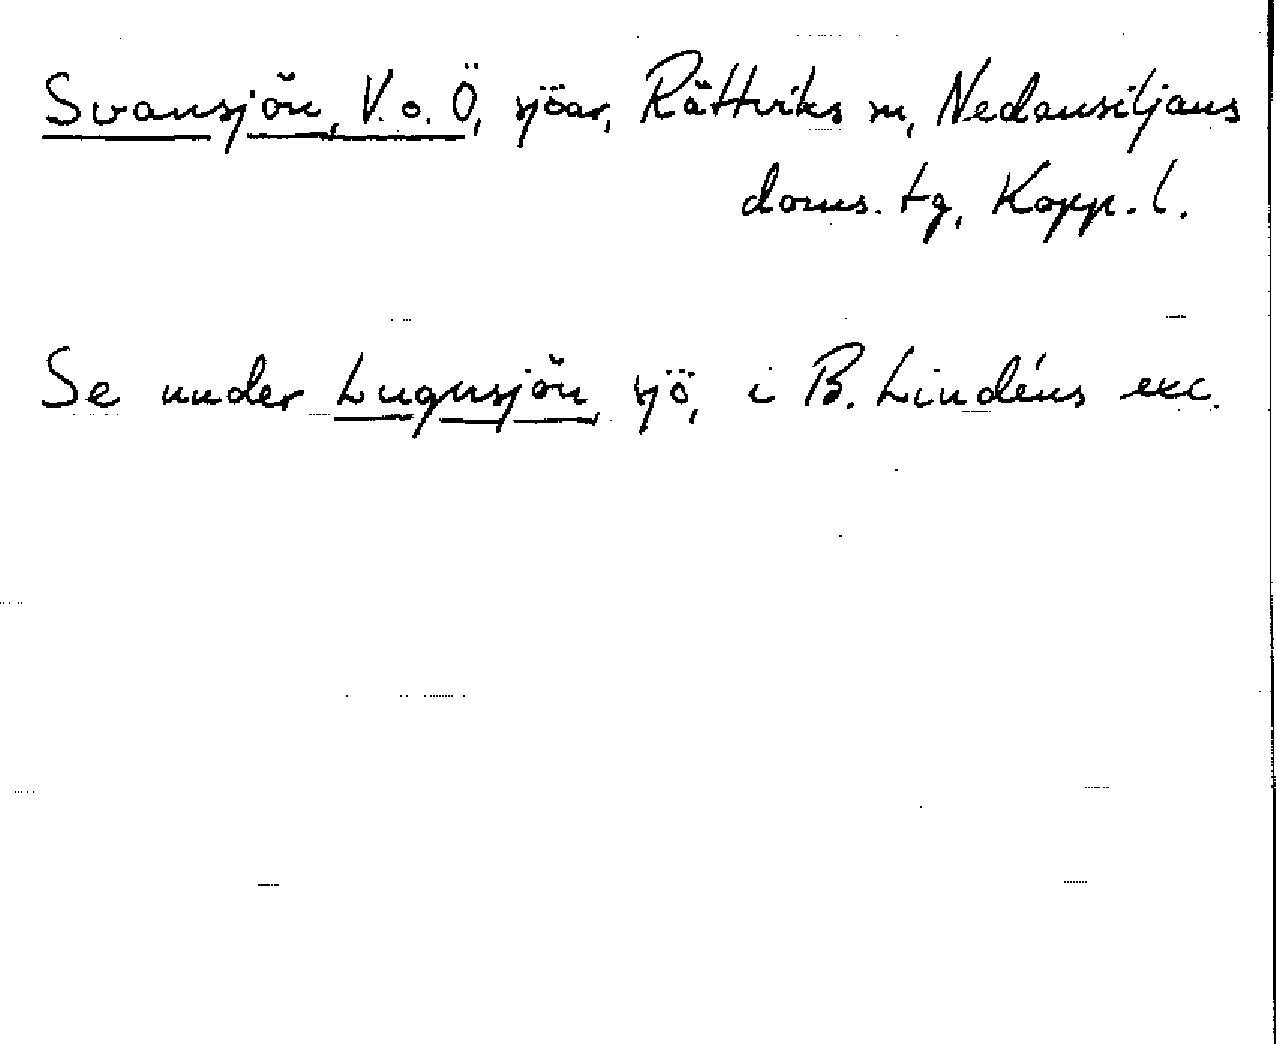 Svansjön, V. o. Ö, sjöar, Rättviks sn, Nedansiljans
doms. tg, Kopp. l.
Se under Lugnsjön sjö, i B. Lindéns exc.